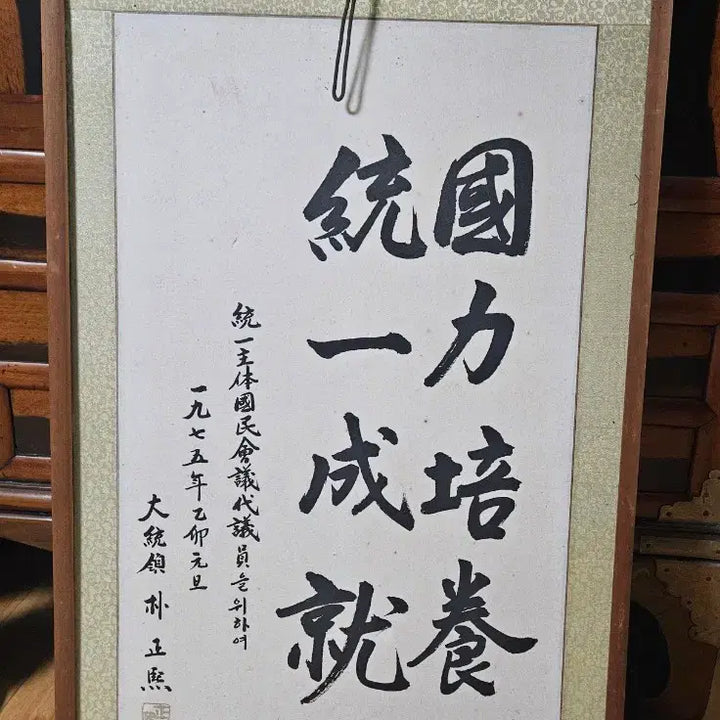 國力培養
統一成就
統一主体國民會議代議員을위하여
一九七五年乙卯元旦
大統領 朴正熙